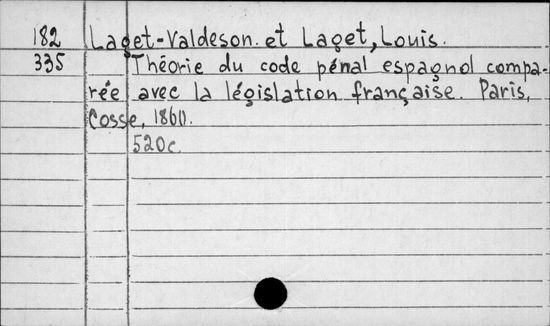 182 Laget-Valdeson. et Laget, Louis.
335 Théorie du code pénal espagnol compa-
rée avec la législation française. Paris,
Cosse, 1860.
520c.